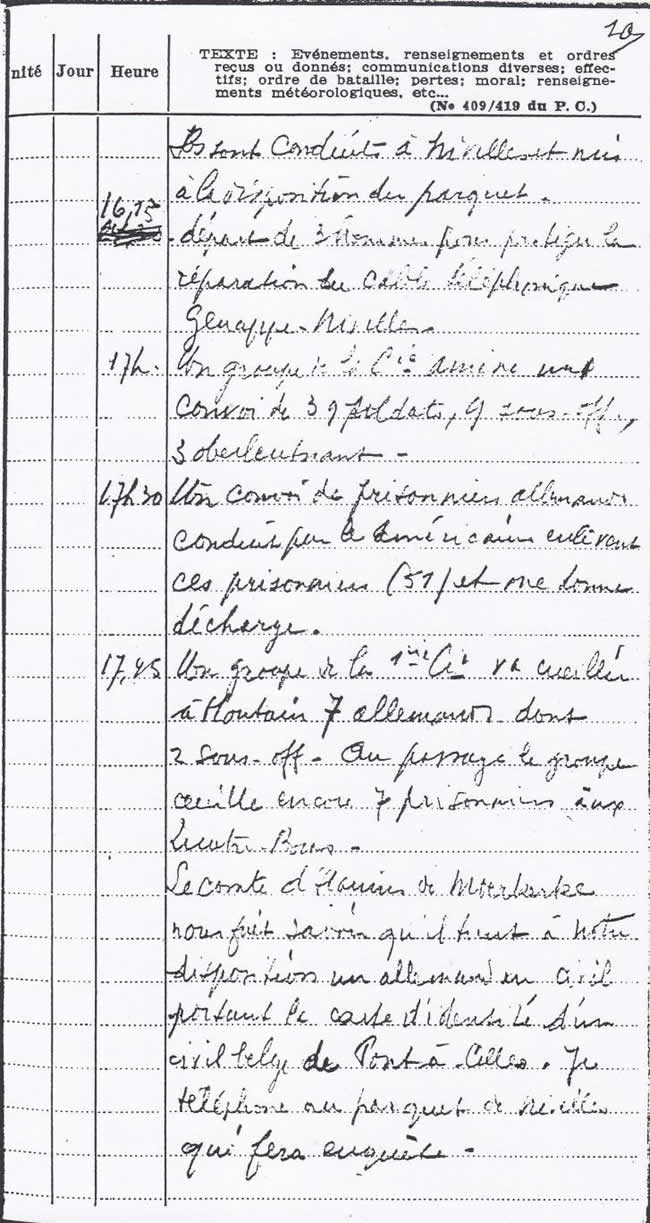 20
nité Jour Heure TEXTE : Evénements, renseignements et ordres
reçus ou donnés; communications diverses; effec-
tifs; ordre de bataille; pertes; moral; renseigne-
ments météorologiques, etc...
(No 409/419 du P. C.)
Ils sont conduits à Nivelles et mis
à la disposition du parquet.
16,15 départ de 3 hommes pour protéger la
réparation du cable téléphonique
Genappe-Nivelles.
17h. Un groupe de la Cie amène un
convoi de 39 soldats, 9 sous-off.,
3 oberleutnant -
17h30 Un convoi de prisonniers allemands
conduit par le américains enlèvent
ces prisonniers (51) et me donne
décharge.
17,45 Un groupe de la 1ère Cie va cueillir
à Houtain 7 allemands dont
2 sous-off - Au passage le groupe
cueille encore 7 prisonniers aux
Quatre-Bras -
Le comte d'Hanins de Moerkerke
nous fait savoir qu'il tient à notre
disposition un allemand en civil
portant la carte d'identité d'un
civil belge de Pont à Celles. Je
téléphone au parquet de Nivelles
qui fera enquête -